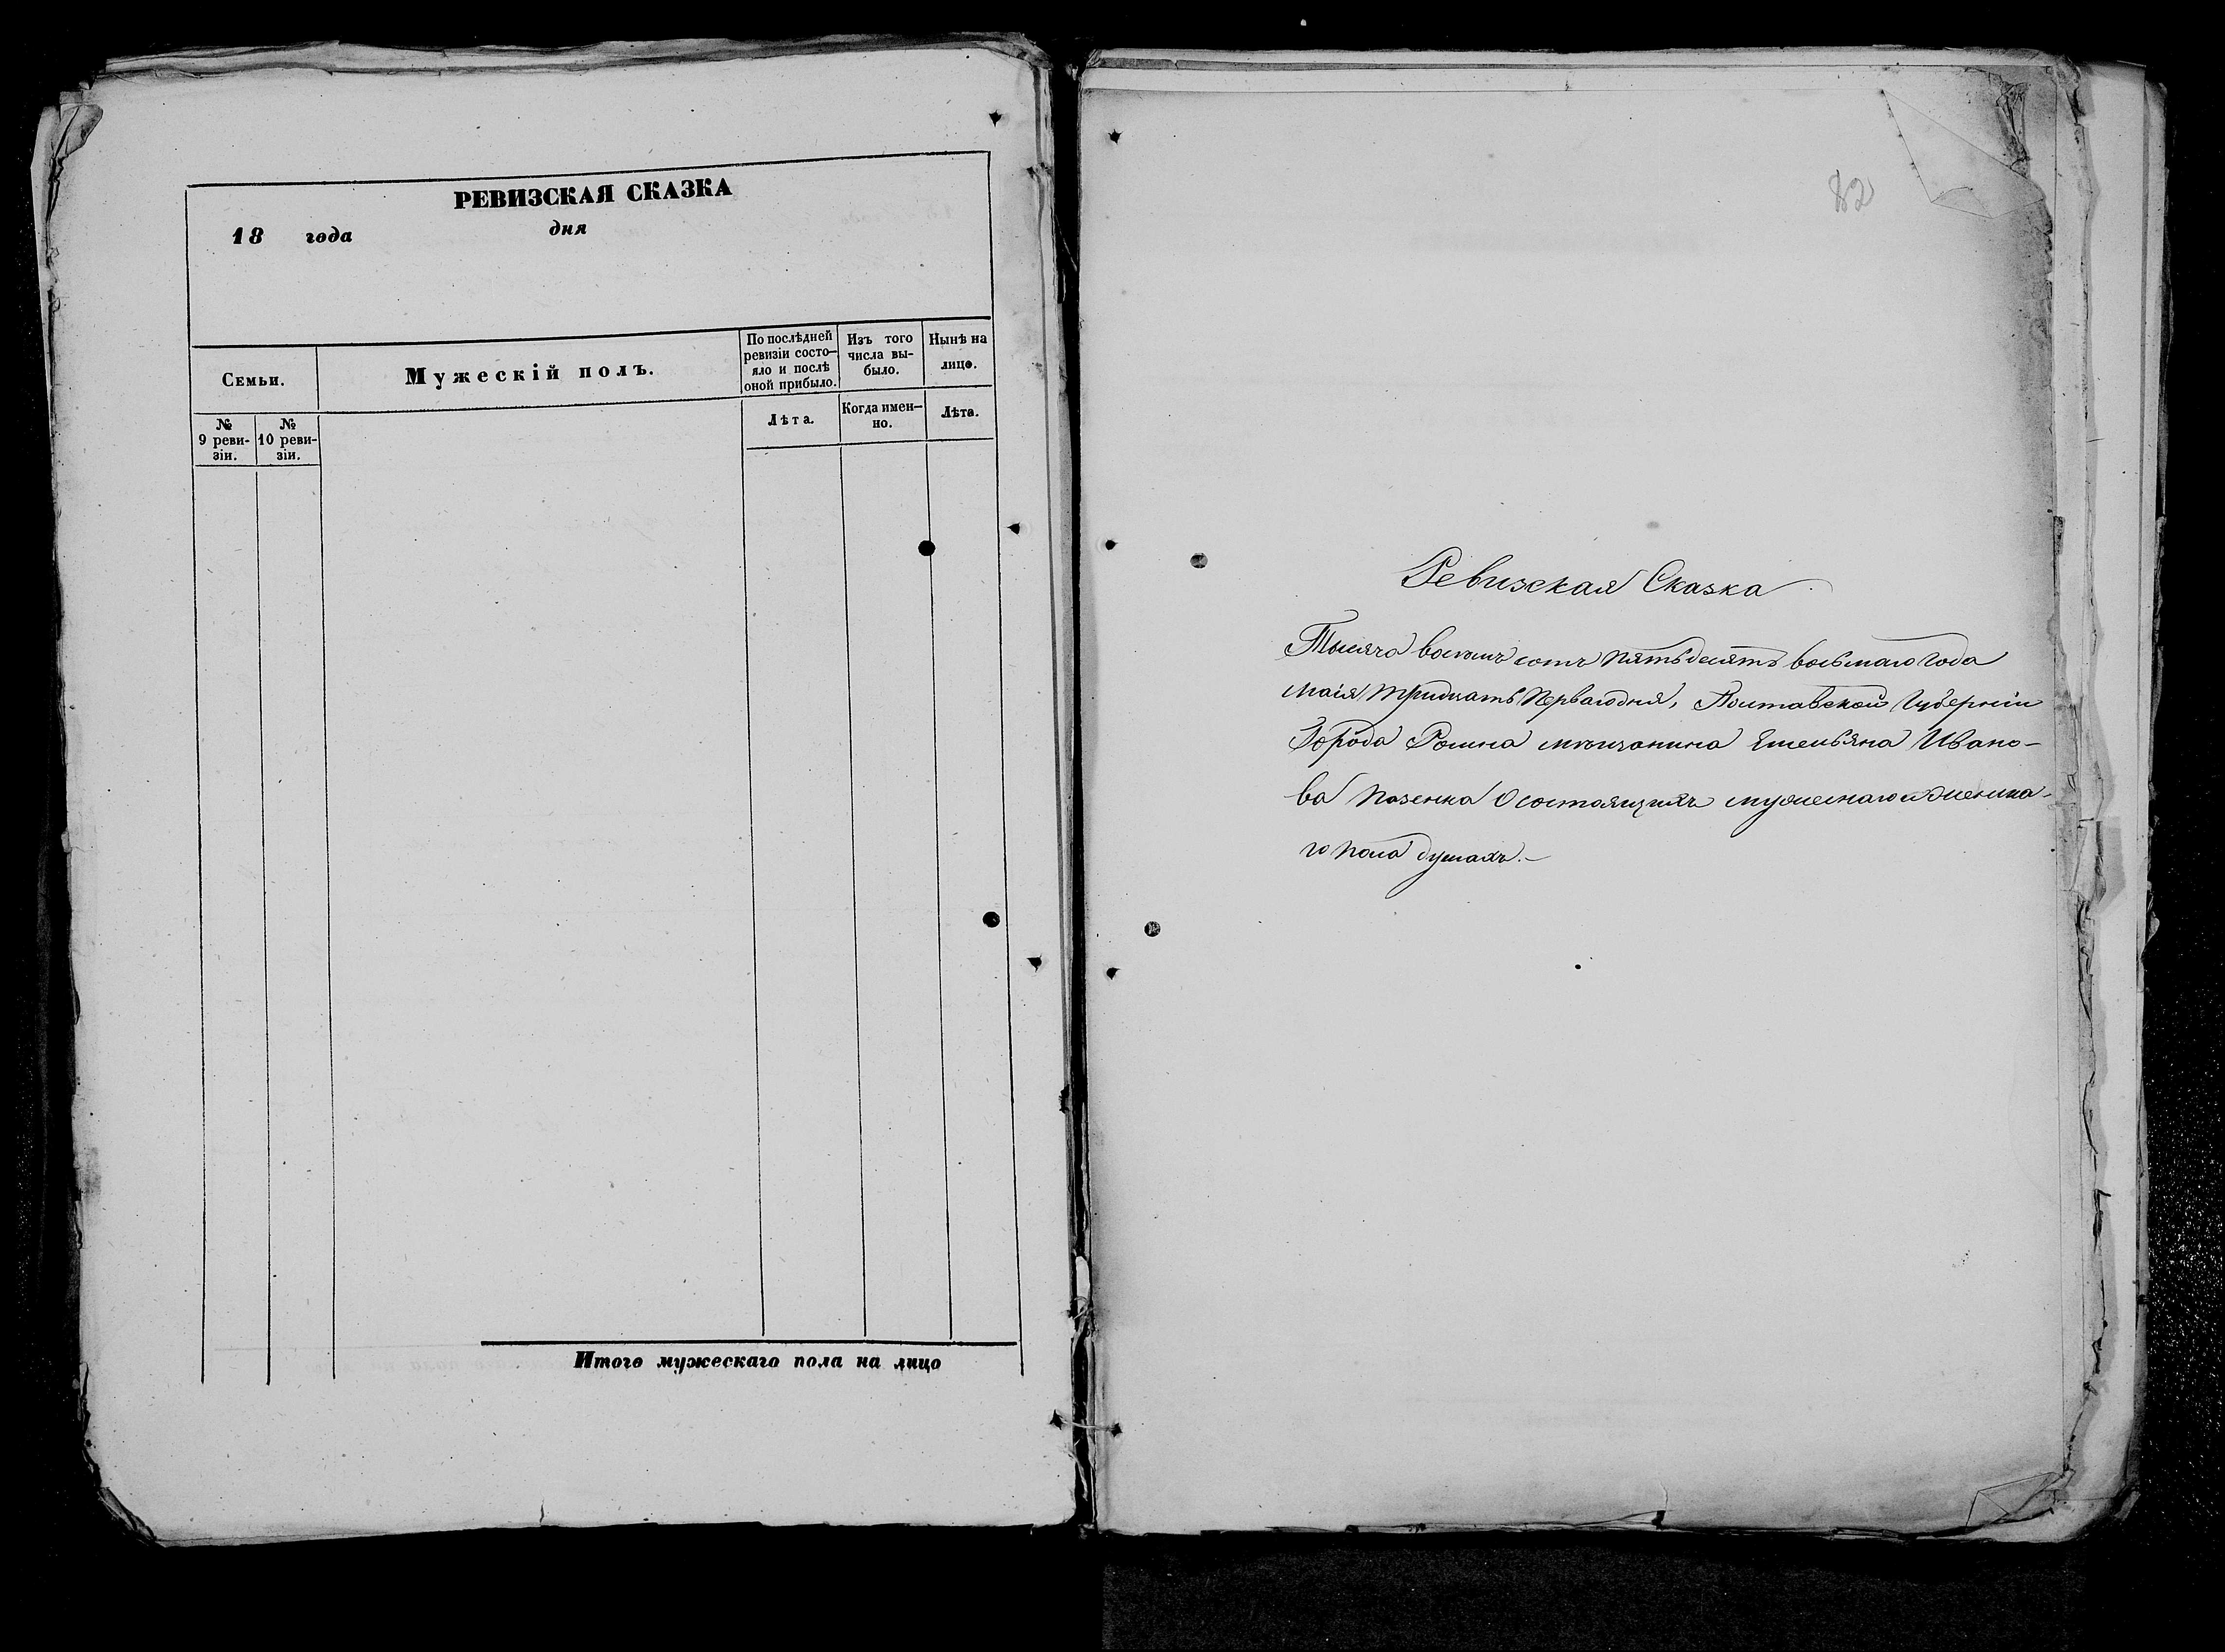 РЕВИЗСКАЯ СКАЗКА
18 года дня
Семьи.
Мужескій полъ.
По послѣдней ревизіи состо-
яло и послѣ
оной прибыло.
Изъ того
числа вы-
было.
Нынѣ на
лицо.
№
9 реви-
зіи.
№
10 реви-
зіи.
Лѣта.
Когда имен-
но.
Лѣта.
Итого мужескаго пола на лицо
82
Ревизская Сказка
Тысяча восемь сотъ пятьдесятъ восьмаго года
маія тридцать перваго дня, Полтавской Губерніи
Города Ромна мѣщанина Емельяна Ивано-
ва О состоящихъ мужескаго и женска-
го пола душахъ.-